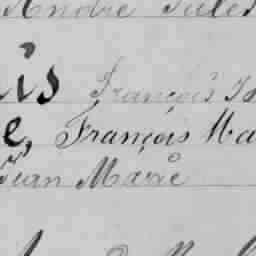 André Jules
is François Is
e, François Ma
Jean Marie